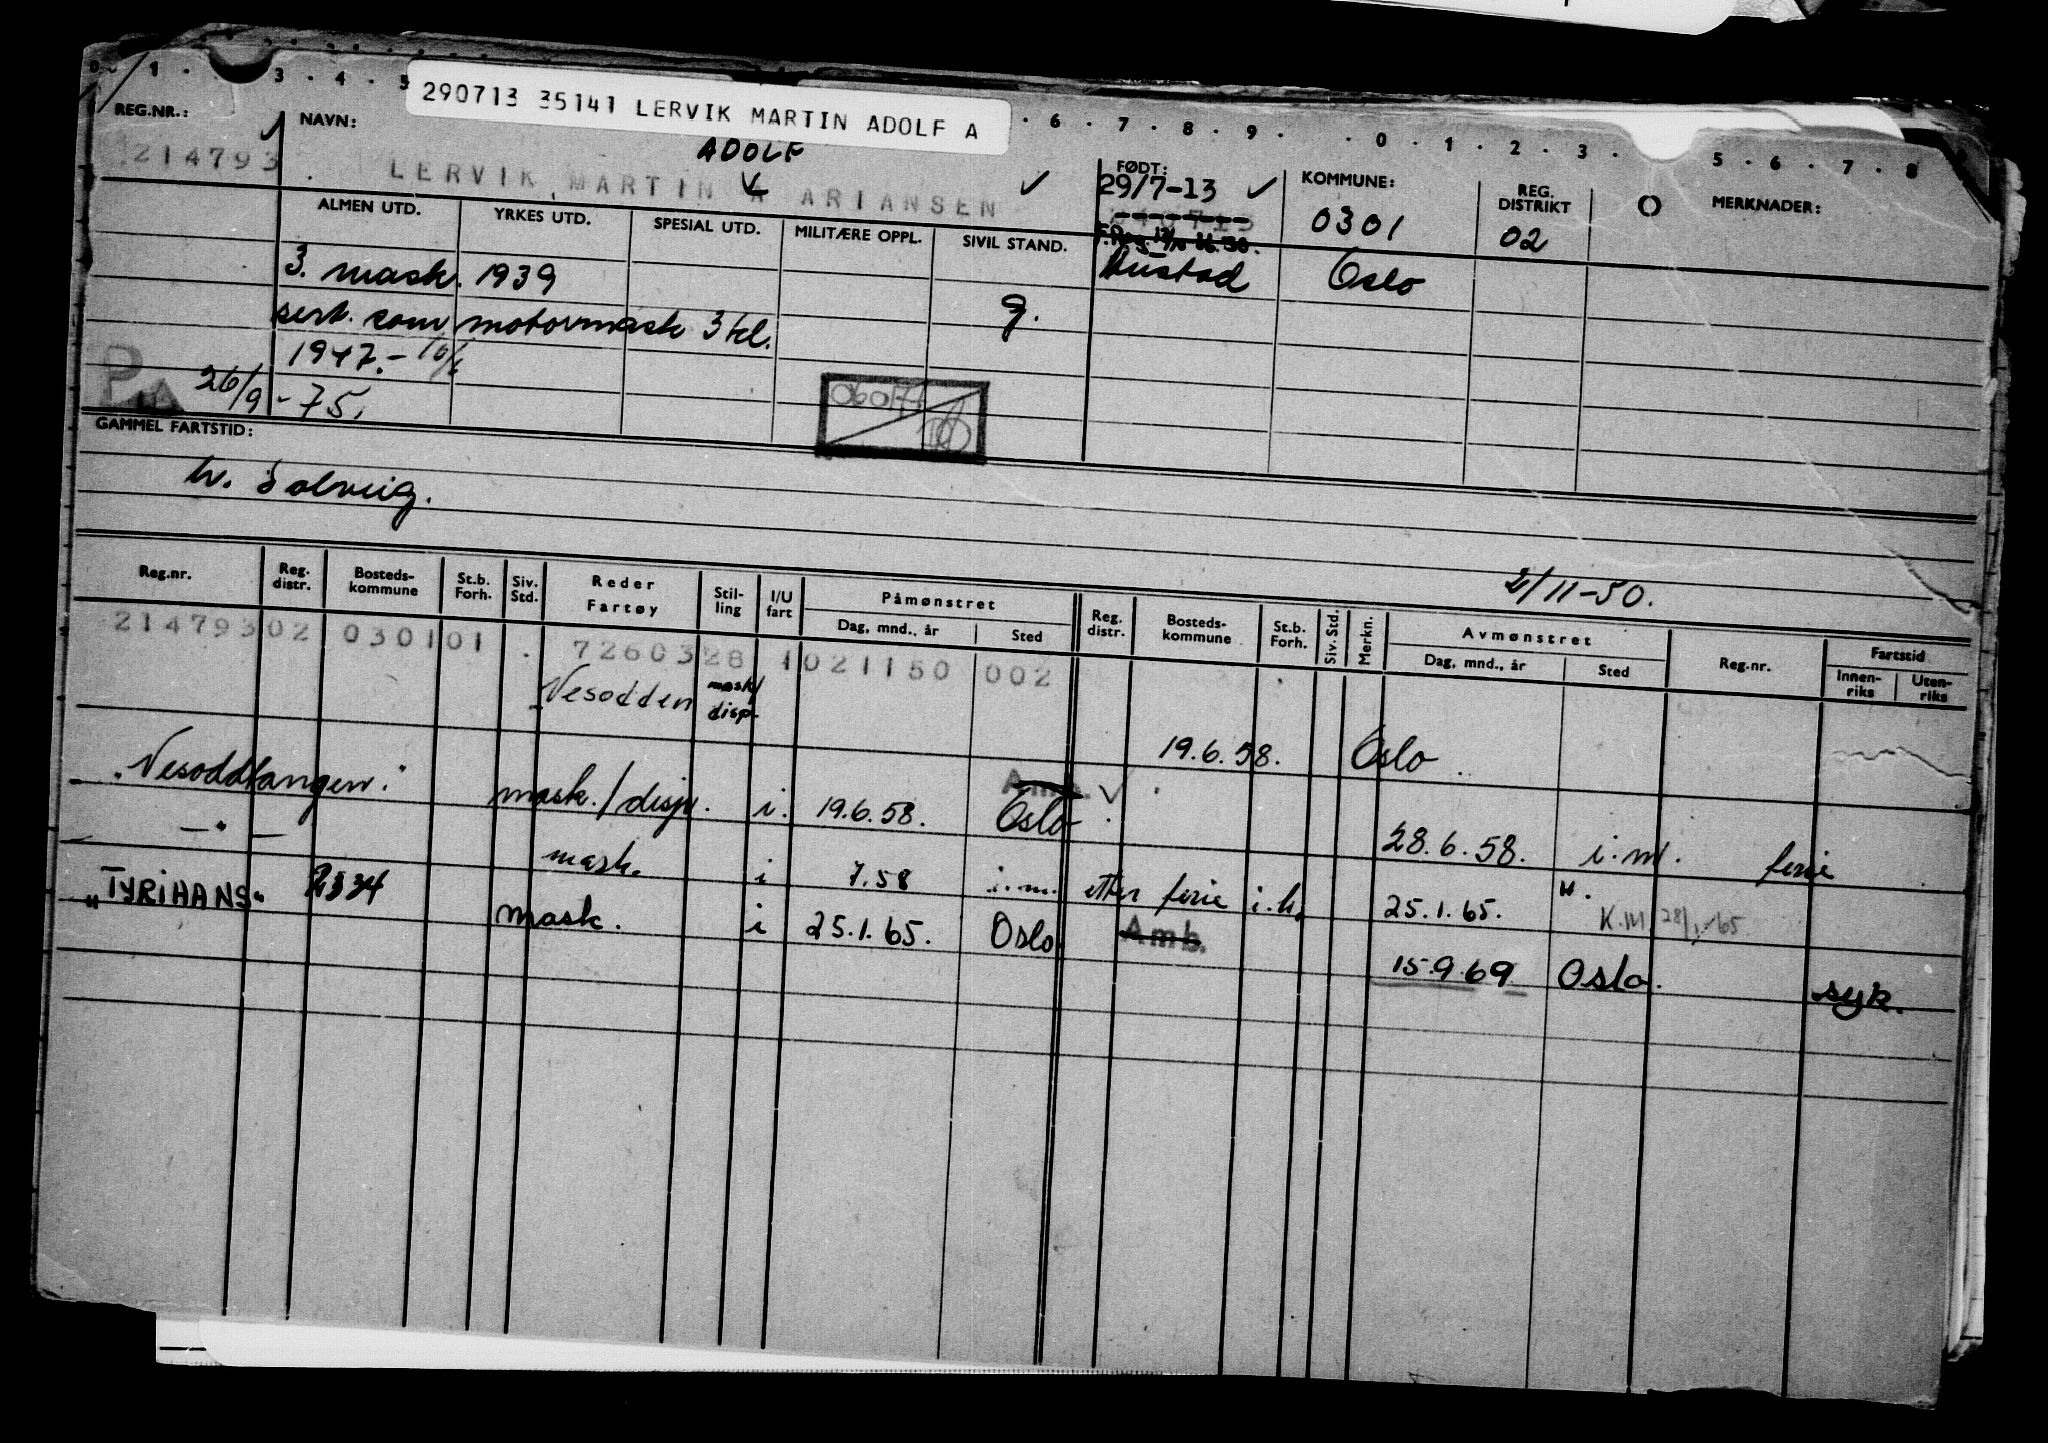 0 · 1 · 3 · 4 · 5 · 6 · 7 · 8 · 9 · 0 · 1 · 2 · 3 · 5 · 6 · 7 · 8
290713 35141 LERVIK MARTIN ADOLF A
REG.NR.: NAVN: FØDT: KOMMUNE: REG. DISTRIKT MERKNADER:
ADOLF
214793 LERVIK, MARTIN A ARIANSEN 29/7-13 0301 02
ALMEN UTD. YRKES UTD. SPESIAL UTD. MILITÆRE OPPL. SIVIL STAND.
3. mask. 1939 g. Hustad Oslo
sert. som motormask 3 kl.
1947.-
PA 26/9-75.
GAMMEL FARTSTID:
h. Solveig.
2/11-50.
Reg.nr. Reg. distr. Bosteds-kommune St.b. Forh. Siv. Std. Reder Fartøy Stil-ling I/U fart Påmønstret Dag, mnd., år Sted Reg. distr. Bosteds-kommune St.b. Forh. Siv. Std. Merkn. Avmønstret Dag, mnd., år Sted Reg.nr. Fartstid Innen-riks Uten-riks
214793 02 0301 01 72603 28 1 021150 002
Nesodden mask/disp. 19.6.58. Oslo
"Nesoddtangen" mask./disp. i. 19.6.58. Oslo Amb. 28.6.58. i.m. ferie
—"— mask. i 7.58 i.m. etter ferie i.h. 25.1.65. K.M 28/1-65
"TYRIHANS" mask. i 25.1.65. Oslo Amb. 15.9.69 Oslo. syk.